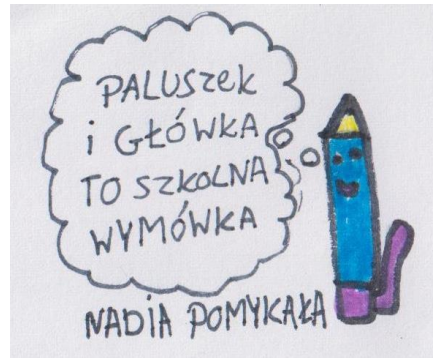 PALUSZEK
i GŁÓWKA
TO SZKOLNA
WYMÓWKA
NADIA POMYKAŁA